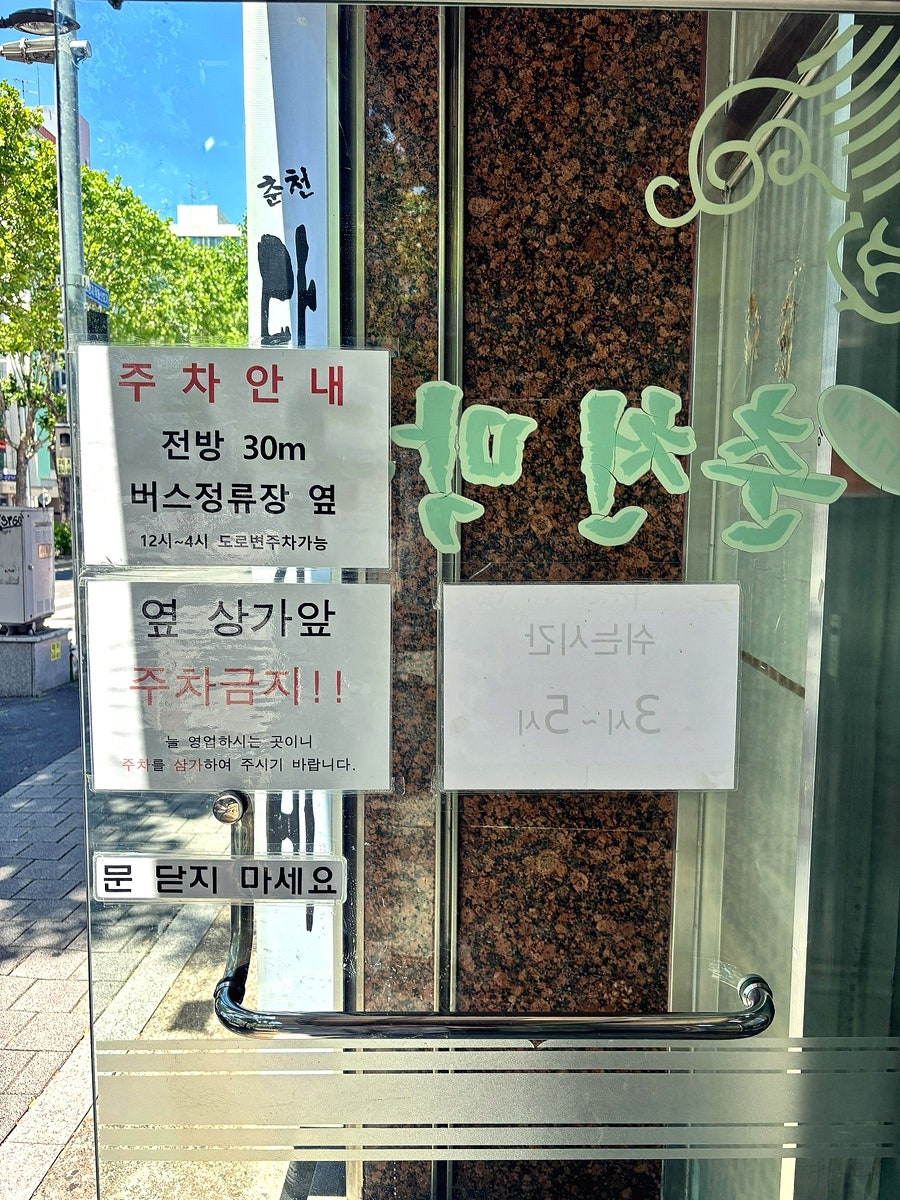 춘천
막
주차안내
전방 30m
버스정류장 옆
12시~4시 도로변주차가능
춘천막
옆 상가앞
주차금지!!
늘 영업하시는 곳이니
주차를 삼가하여 주시기 바랍니다.
쉬는시간
3시~5시
문 닫지 마세요